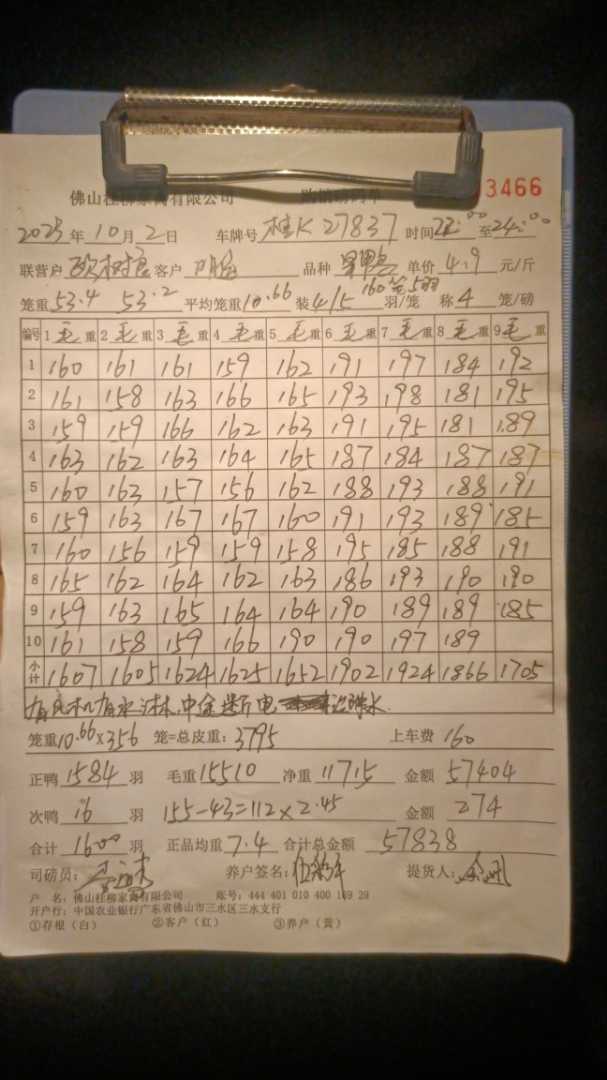 佛山桂柳家禽有限公司 购销磅码单 03466
2025年10月2日 车牌号 桂K 27837 时间22:00至24:00
联营户 欧树 客户 品种 单价 4.9 元/斤
笼重53.4 53.2 平均笼重10.66 装4/5 160笼5羽 羽/笼 称 4 笼/磅
编号 1毛重 2毛重 3毛重 4毛重 5毛重 6毛重 7毛重 8毛重 9毛重
1 160 161 161 159 162 191 197 184 192
2 161 158 163 166 165 193 198 181 195
3 159 159 166 162 163 191 195 181 189
4 163 162 163 164 165 187 184 187 187
5 160 163 157 156 162 188 193 188 191
6 159 163 167 167 160 191 193 189 185
7 160 156 159 159 158 195 185 188 191
8 165 162 164 162 163 186 193 190 190
9 159 163 165 164 164 190 189 189 185
10 161 158 159 166 190 190 197 189
小计 1607 1605 1624 1625 1652 1902 1924 1866 1705
有水淋水,中途断电
笼重10.66×356 笼=总皮重:3795 上车费 160
正鸭 1584 羽 毛重15510 净重 11715 金额 57404
次鸭 16 羽 155-43=112×2.45 金额 274
合计 1600 羽 正品均重 7.4 合计总金额 57838
司磅员: 养户签名: 提货人:
户 名:佛山桂柳家禽有限公司 账号:444 401 010 400 189 29
开户行:中国农业银行广东省佛山市三水区三水支行
①存根(白) ②客户(红) ③养户(黄)